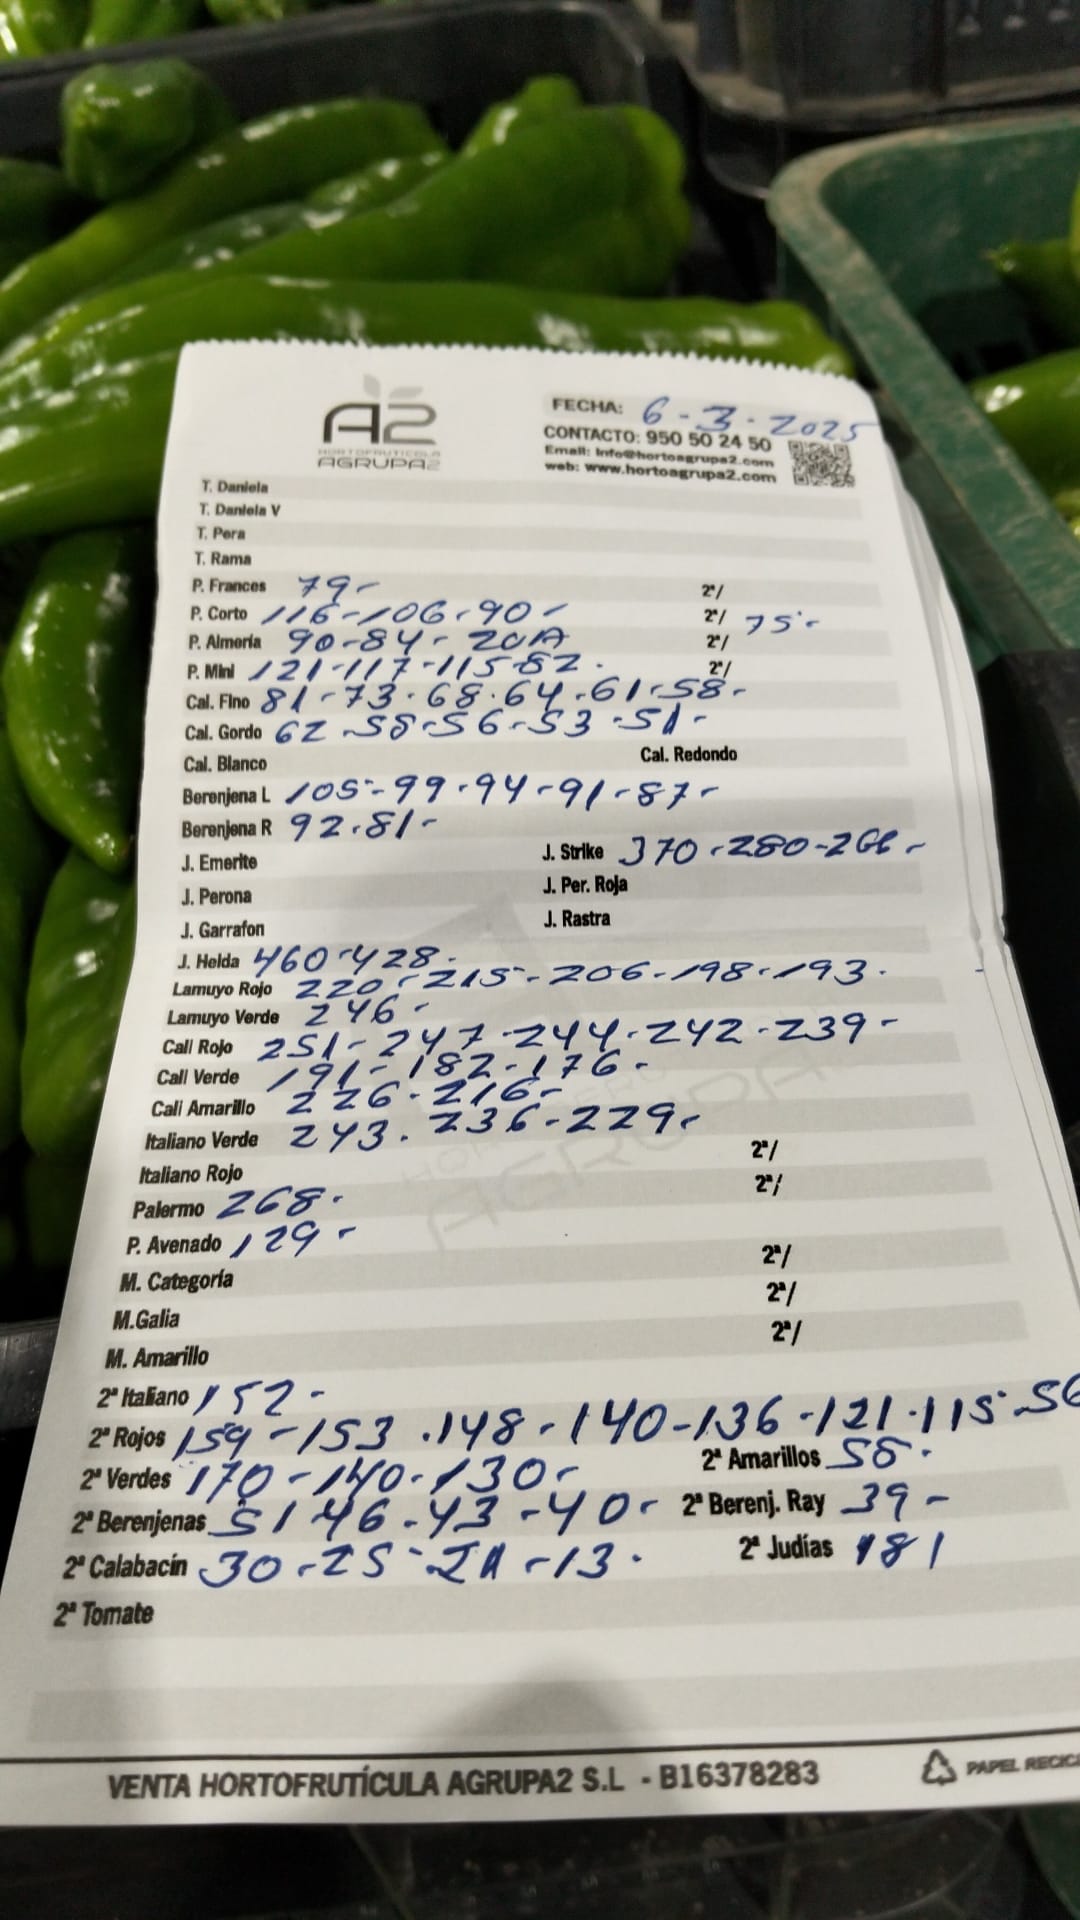 A2
HORTOFRUTICOLA
AGRUPA2
FECHA: 6-3-2025
CONTACTO: 950 50 24 50
Email: Info@hortoagrupa2.com
web: www.hortoagrupa2.com
T. Daniela
T. Daniela V
T. Pera
T. Rama
P. Frances 79- 2ª/
P. Corto 116-106-90- 2ª/ 75-
P. Almería 90-84- 2ª/
P. Mini 121-117-115-82. 2ª/
Cal. Fino 81-73-68-64-61-58-
Cal. Gordo 62-58-56-53-51-
Cal. Blanco Cal. Redondo
Berenjena L 105-99-94-91-87-
Berenjena R 92-81-
J. Emerite J. Strike 370-280-
J. Perona J. Per. Roja
J. Garrafon J. Rastra
J. Helda 460-428-
Lamuyo Rojo 220-215-206-198-193-
Lamuyo Verde 246-
Cali Rojo 251-247-244-242-239-
Cali Verde 191-182-176-
Cali Amarillo 226-216-
Italiano Verde 243-236-229- 2ª/
Italiano Rojo 2ª/
Palermo 268-
P. Avenado 129-
M. Categoría 2ª/
M.Galia 2ª/
M. Amarillo 2ª/
2ª Italiano 152-
2ª Rojos 159-153-148-140-136-121-115-56
2ª Verdes 170-140-130- 2ª Amarillos 58-
2ª Berenjenas 51-46-43-40- 2ª Berenj. Ray 39-
2ª Calabacín 30-25- -13- 2ª Judías 181
2ª Tomate
VENTA HORTOFRUTÍCULA AGRUPA2 S.L - B16378283
PAPEL RECIC